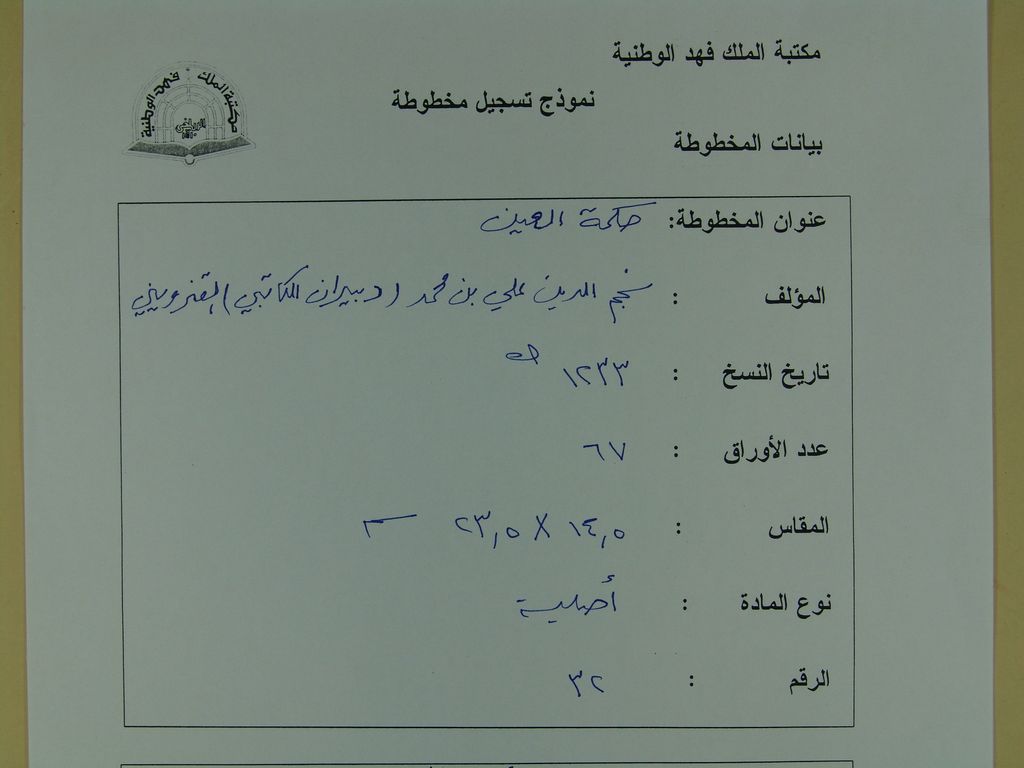 مكتبة الملك فهد الوطنية
مكتبة الملك فهد الوطنية
نموذج تسجيل مخطوطة
بيانات المخطوطة
عنوان المخطوطة: حكمة العين
المؤلف : نجم الدين علي بن محمد (دبيران الكاتبي) القزويني
تاريخ النسخ : ١٢٣٣ هـ
عدد الأوراق : ٦٧
المقاس : ١٤,٥ X ٢٣,٥ سم
نوع المادة : أصلية
الرقم : ٣٢